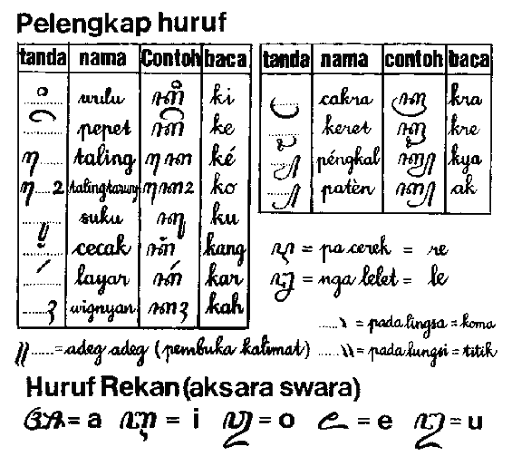 Pelengkap huruf
tanda nama Contoh baca
ꦶ wulu ꦏꦶ ki
ꦼ pepet ꦏꦼ ke
ꦺ taling ꦏꦺ ké
ꦺ.....ꦴ talingtarung ꦏꦺꦴ ko
ꦸ suku ꦏꦸ ku
ꦁ cecak ꦏꦁ kang
ꦂ layar ꦏꦂ kar
ꦃ wignyan ꦏꦃ kah
tanda nama contoh baca
ꦿ cakra ꦏꦿ kra
ꦽ keret ꦏꦽ kre
ꦾ péngkal ꦏꦾ kya
꧀ patèn ꦏ꧀ ak
ꦉ = pa cerek = re
ꦊ = nga lelet = le
.....꧈ = pada lingsa = koma
꧋.....= adeg adeg (pembuka kalimat) .....꧉ = pada lungsi = titik
Huruf Rekan (aksara swara)
ꦄ = a ꦆ = i ꦎ = o ꦌ = e ꦈ = u